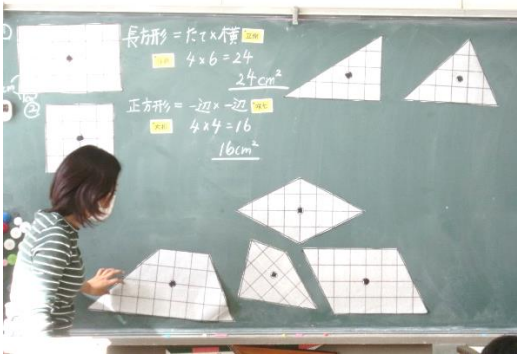 長方形=たて×横
4×6=24
24cm²
正方形=一辺×一辺
4×4=16
16cm²